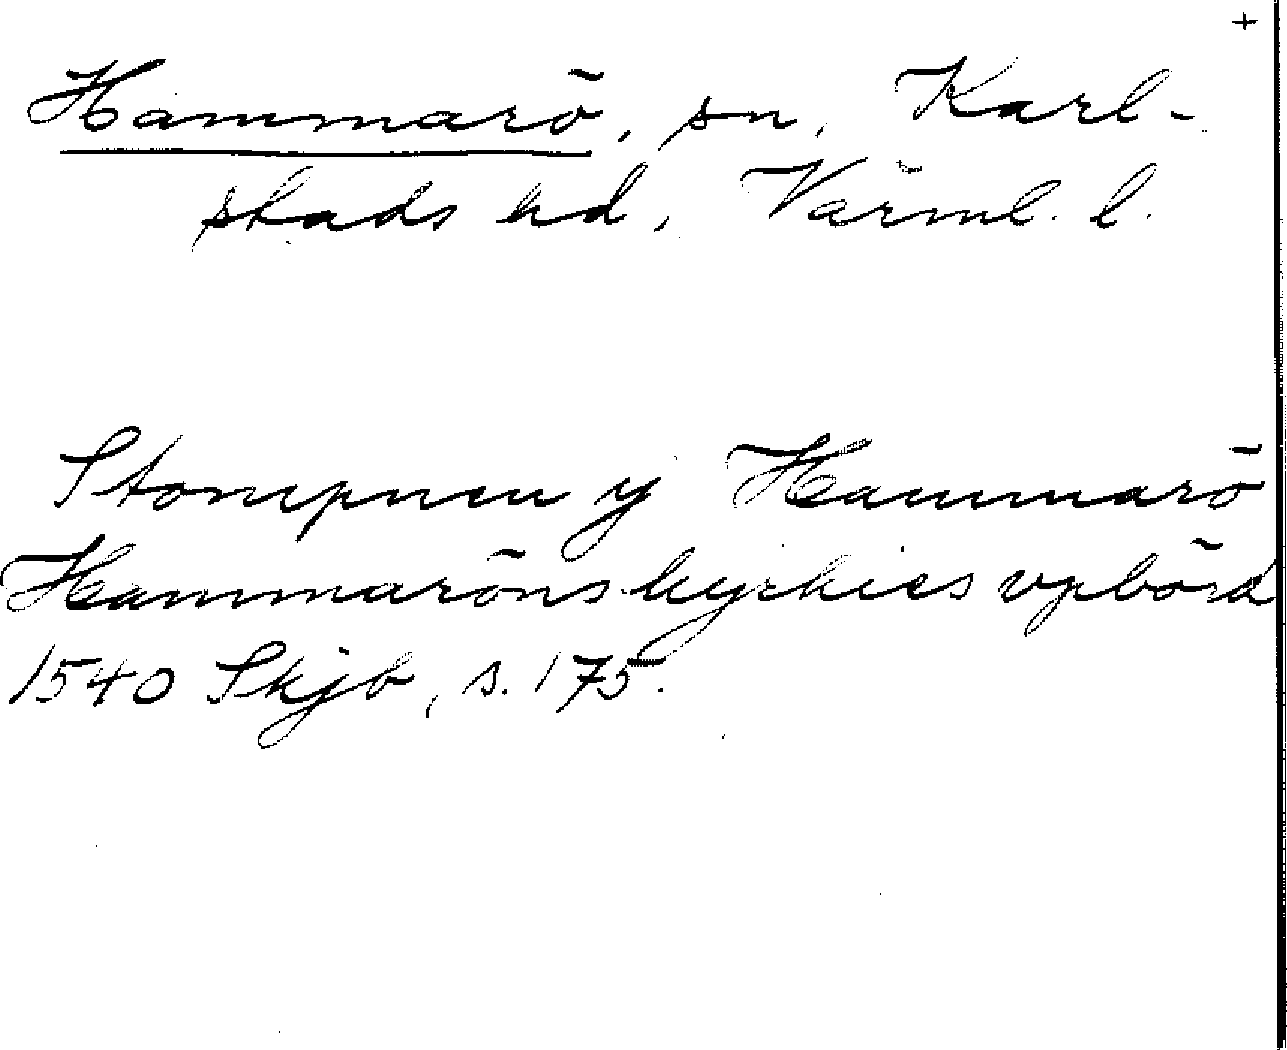 +
Hammarö, sn, Karl-
stads hd, Värml. l.
Stompnen y Hammarö
Hammaröns kyrkies vpbörd
1540 Skjb, s. 175.